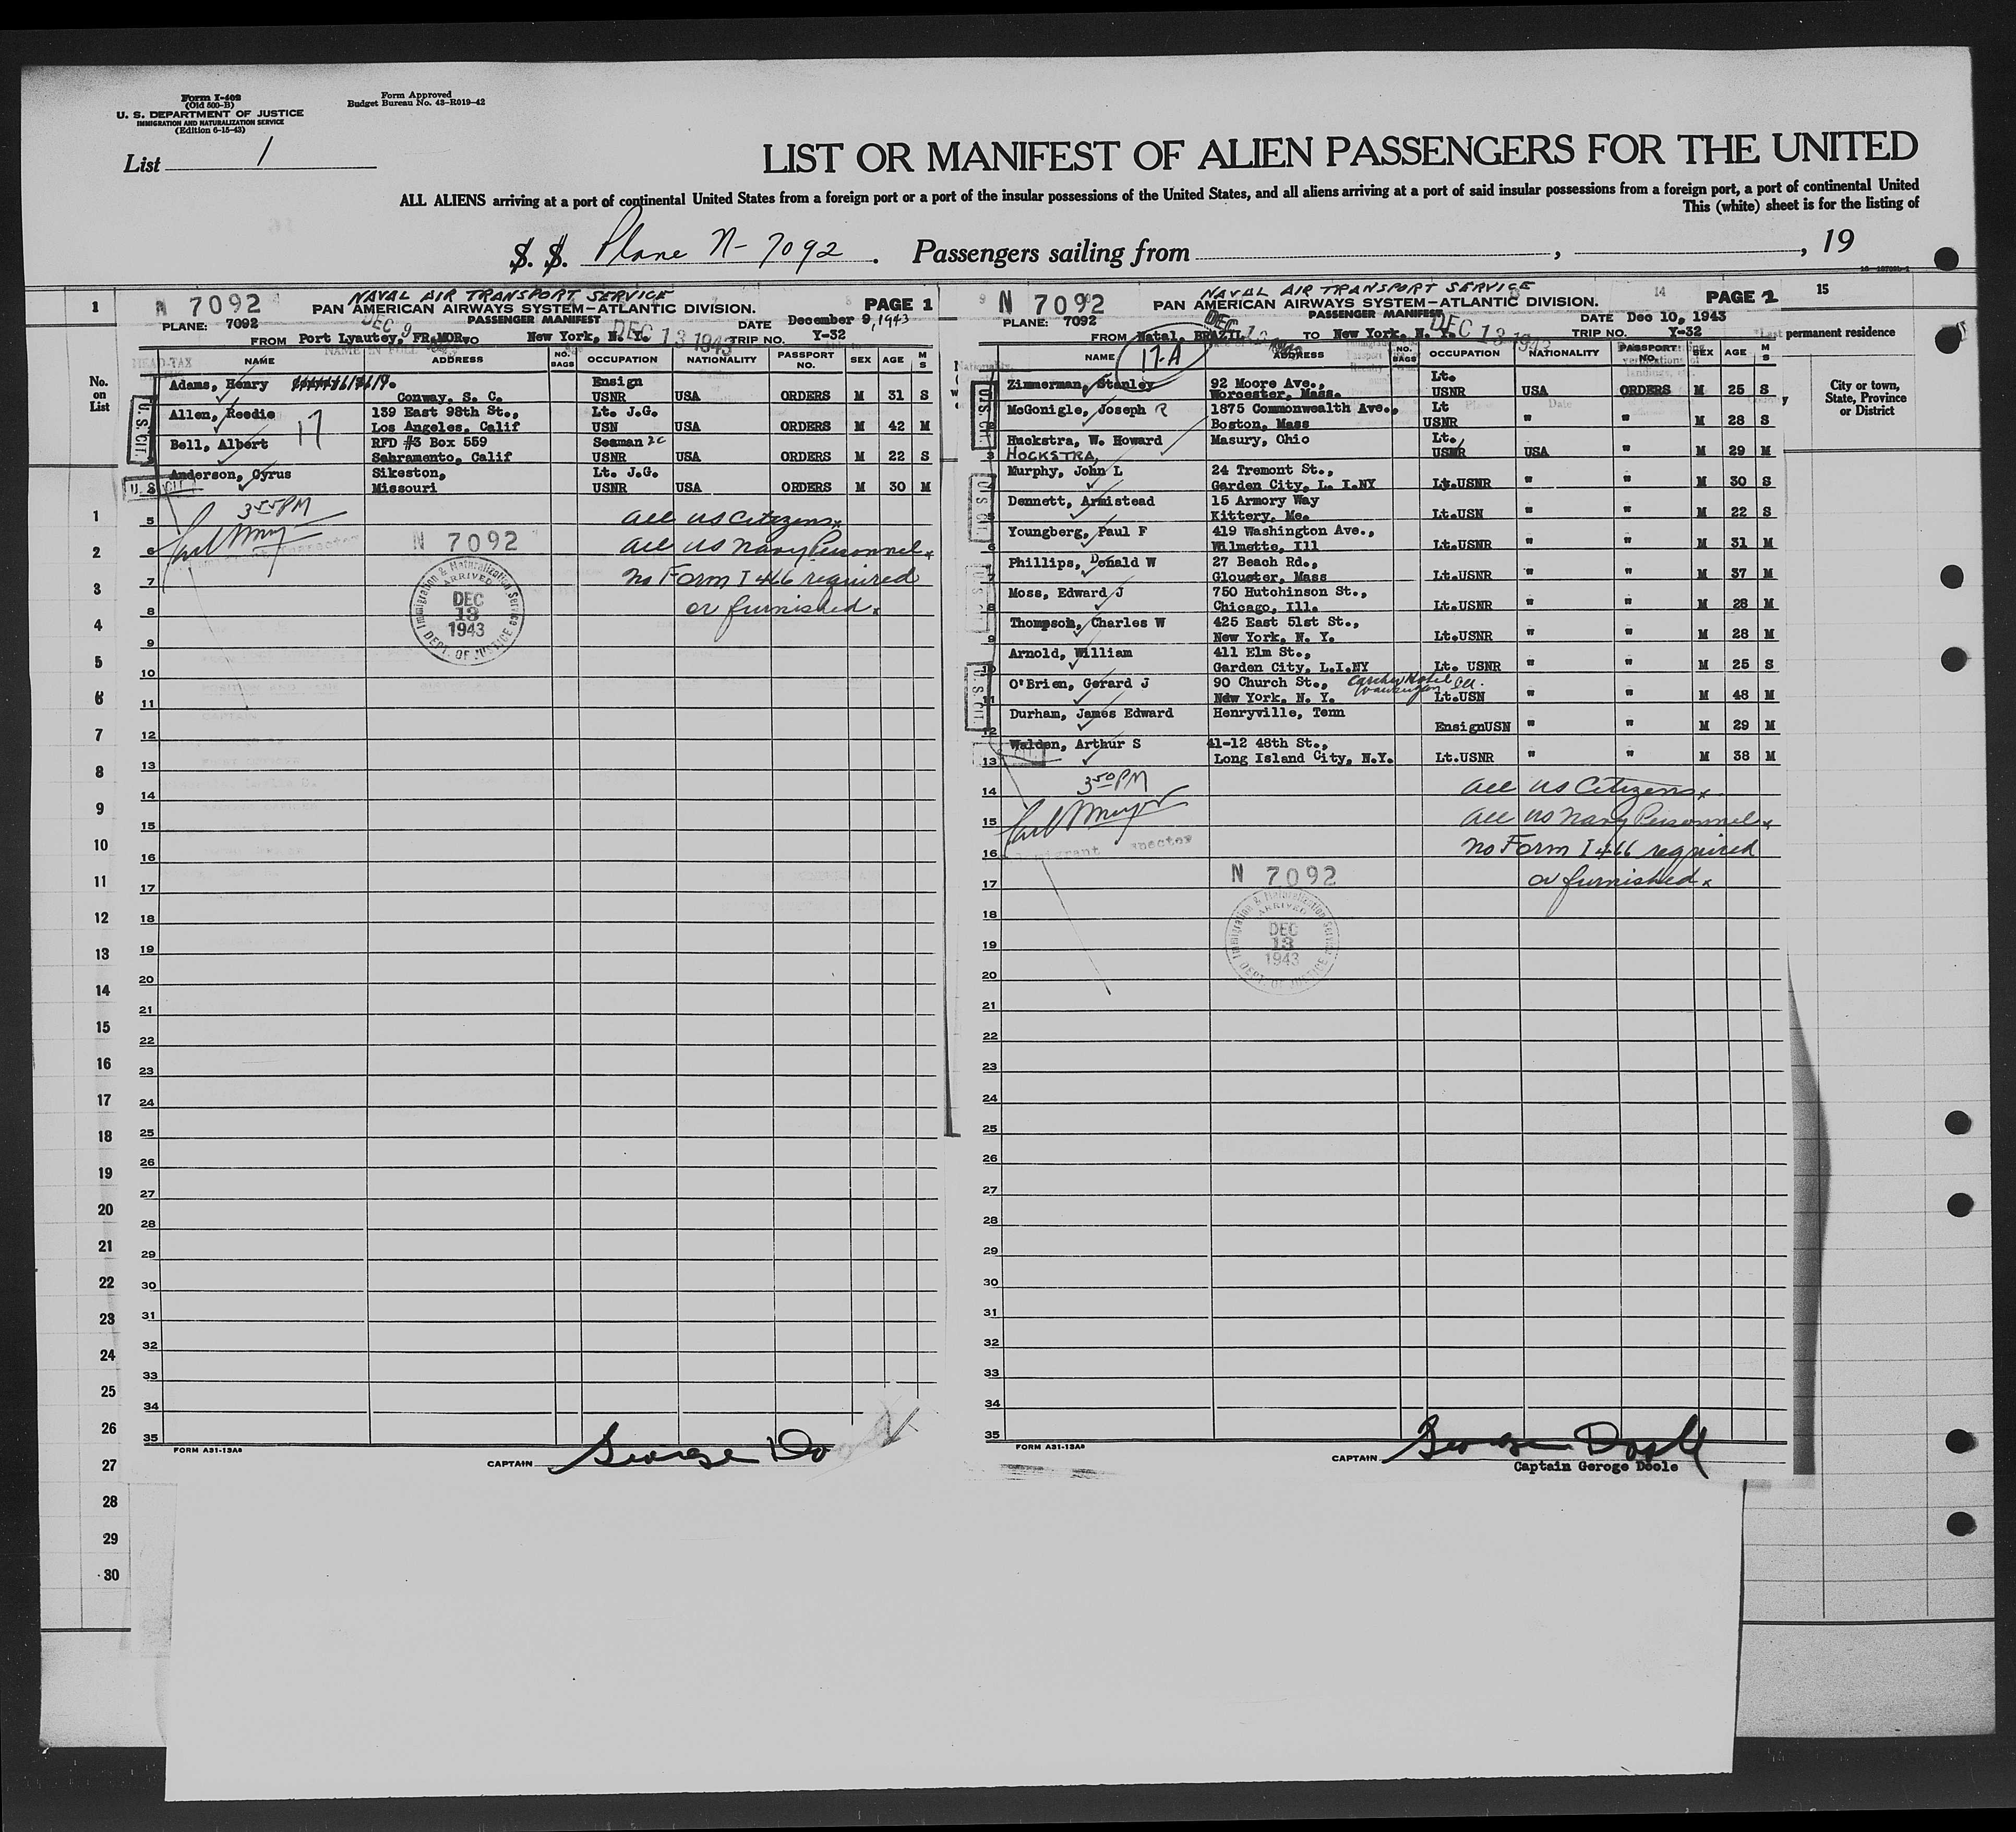 Form I-402
(Old 500-B)
U. S. DEPARTMENT OF JUSTICE
IMMIGRATION AND NATURALIZATION SERVICE
(Edition 6-15-43)
Form Approved
Budget Bureau No. 43-R019-42
List 1
LIST OR MANIFEST OF ALIEN PASSENGERS FOR THE UNITED
ALL ALIENS arriving at a port of continental United States from a foreign port or a port of the insular possessions of the United States, and all aliens arriving at a port of said insular possessions from a foreign port, a port of continental United
This (white) sheet is for the listing of
S. S. Plane N-7092. Passengers sailing from , , 19
1
No. on List
1
2
3
4
5
6
7
8
9
10
11
12
13
14
15
16
17
18
19
20
21
22
23
24
25
26
27
28
29
30
N 7092 NAVAL AIR TRANSPORT SERVICE
PAN AMERICAN AIRWAYS SYSTEM-ATLANTIC DIVISION. PAGE 1
PLANE: 7092 PASSENGER MANIFEST DATE December 9, 1943
DEC 9 DEC 13 1943
FROM Port Lyautey, FR.MOR. TO New York, N. Y. TRIP NO. Y-32
NAME ADDRESS NO. BAGS OCCUPATION NATIONALITY PASSPORT NO. SEX AGE M S
Adams, Henry Conway, S. C. Ensign USNR USA ORDERS M 31 S
Allen, Reedie 139 East 98th St., Los Angeles, Calif Lt. J.G. USN USA ORDERS M 42 M
17
Bell, Albert RFD #3 Box 559 Sahramento, Calif Seaman 2c USNR USA ORDERS M 22 S
Anderson, Cyrus Sikeston, Missouri Lt. J.G. USNR USA ORDERS M 30 M
U. S. CIT.
U. S. CIT.
3 55 PM
All US Citizens
All US Navy Personnel
No Form I 466 required
or furnished
N 7092
Immigration & Naturalization Service
ARRIVED
DEC
13
1943
DEPT. OF JUSTICE
5
6
7
8
9
10
11
12
13
14
15
16
17
18
19
20
21
22
23
24
25
26
27
28
29
30
31
32
33
34
35
FORM A31-13A
CAPTAIN George Do
N 7092 NAVAL AIR TRANSPORT SERVICE 14 15
PAN AMERICAN AIRWAYS SYSTEM-ATLANTIC DIVISION. PAGE 2
PLANE: 7092 PASSENGER MANIFEST DATE Dec 10, 1943
DEC 13 1943
FROM Natal, BRAZIL TO New York, N. Y. TRIP NO. Y-32
17-A
NAME ADDRESS NO. BAGS OCCUPATION NATIONALITY PASSPORT NO. SEX AGE M S
Zimmerman, Stanley 92 Moore Ave., Worcester, Mass. Lt. USNR USA ORDERS M 25 S
McGonigle, Joseph R 1875 Commonwealth Ave., Boston, Mass Lt USNR " " M 28 S
3 Huckstra, W. Howard Masury, Ohio Lt. USNR USA " M 29 M
HOCKSTRA,
Murphy, John L 24 Tremont St., Garden City, L. I.NY Lt.USNR " " M 30 S
Dennett, Armistead 15 Armory Way Kittery, Me. Lt.USN " " M 22 S
6 Youngberg, Paul F 419 Washington Ave., Wilmette, Ill Lt.USNR " " M 31 M
7 Phillips, Donald W 27 Beach Rd., Glouster, Mass Lt.USNR " " M 37 M
8 Moss, Edward J 750 Hutchinson St., Chicago, Ill. Lt.USNR " " M 28 M
9 Thompson, Charles W 425 East 51st St., New York, N. Y. Lt.USNR " " M 28 M
10 Arnold, William 411 Elm St., Garden City, L.I.NY Lt. USNR " " M 25 S
11 O'Brien, Gerard J 90 Church St., New York, N. Y. Lt.USN " " M 48 M
12 Durham, James Edward Henryville, Tenn EnsignUSN " " M 29 M
13 Walden, Arthur S 41-12 48th St., Long Island City, N.Y. Lt.USNR " " M 38 M
U. S. CIT.
U. S. CIT.
U. S. CIT.
3 50 PM
All US Citizens
All US Navy Personnel
No Form I 466 required
or furnished
N 7092
Immigration & Naturalization Service
ARRIVED
DEC
13
1943
DEPT. OF JUSTICE
14
15
16
17
18
19
20
21
22
23
24
25
26
27
28
29
30
31
32
33
34
35
FORM A31-13A
CAPTAIN George Doole
Captain Geroge Doole
permanent residence
City or town, State, Province or District